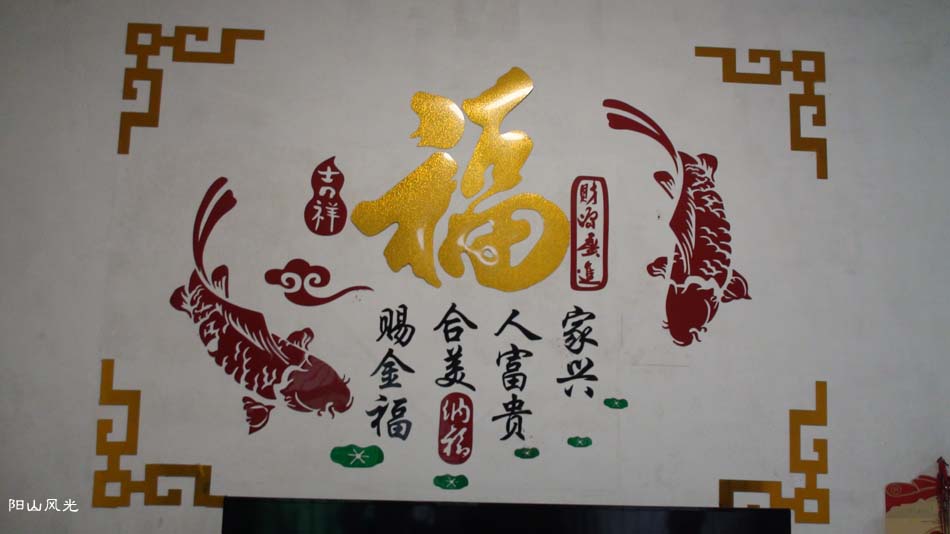 福
吉祥
财源广進
家兴
人富贵
合美纳福
赐金福
阳山风光